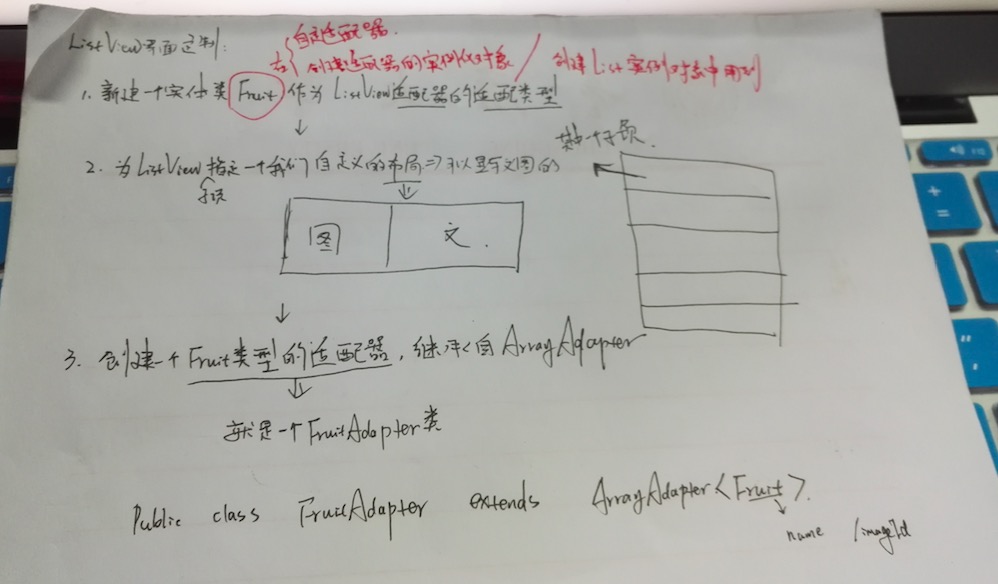 ListView界面定制:
在 自定适配器.
创建适配器的实例化对象 / 创建List实例对象中用到
1. 新建一个实体类 Fruit 作为 ListView适配器的适配类型
其中一个子项.
2. 为ListView指定一个我们自定义的布局⇒可以显示文图的
子项
图 文.
3. 创建一个 Fruit类型的适配器, 继承自 ArrayAdapter
就是一个FruitAdapter类
Public class FruitAdapter extends ArrayAdapter<Fruit>.
name /imageId